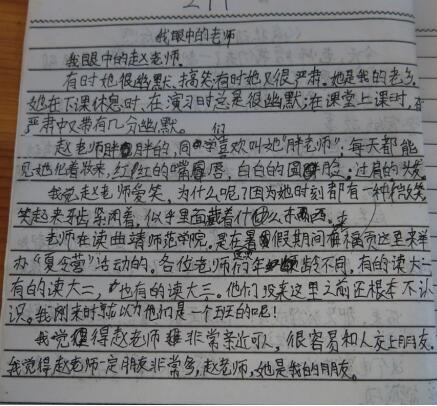 我眼中的老师
我眼中的赵老师。
有时她很幽默、搞笑有时她又很严肃。她是我的老乡
她在下课休息时，在演习时总是很幽默；在课堂上课时，在
严肃中又带有几分幽默。
赵老师胖胖的，同学们喜欢叫她"胖老师"；每天都能
见她化着妆来，红红的嘴唇，白白的圆脸；过肩的头发
我觉赵老师爱笑，为什么呢？因为她时刻都有一种微笑
笑起来牙齿紧闭着，似乎里面藏着什么东西。
老师在读曲靖师范学院。是在暑假期间来福贡这里来举
办"夏令营"活动的。各位老师的年龄不同，有的读大一
有的读大二，也有的读大三。他们没来这里之前还根本不认
识。我刚来时就以为他们是一个班的呢！
我觉得赵老师非常亲近可人，很容易和人交上朋友。
我觉得赵老师一定朋友非常多，赵老师，她是我的朋友。